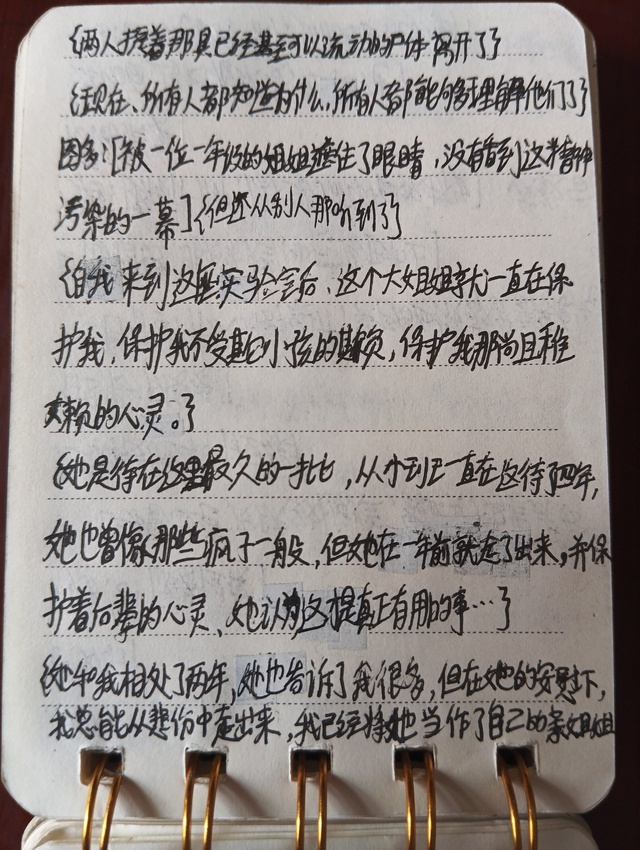 {两人抬着那具已经甚至可以流动的尸体离开了}
{现在、所有人都知道为什么,所有人都能够理解他们了}
因多汀被一位一年级的姐姐遮住了眼睛,没有看到这精神
污染的一幕]{但还从别人那听到了}
{自我来到这里实验室后、这个大姐姐就一直在保
护我,保护我不受其他小孩的欺负,保护我那尚且稚
嫩的心灵。}
{她是待在这里最久的一批,从小到一直在这待了四年,
她也曾像那些疯子一般,但她在一年前就走了出来,并保
护着后辈的心灵、她认为这是真正有用的事…}
{她和我相处了两年,她也告诉了我很多,但在她的安慰下,
我总能从悲伤中走出来,我已经将她当作了自己的亲姐姐